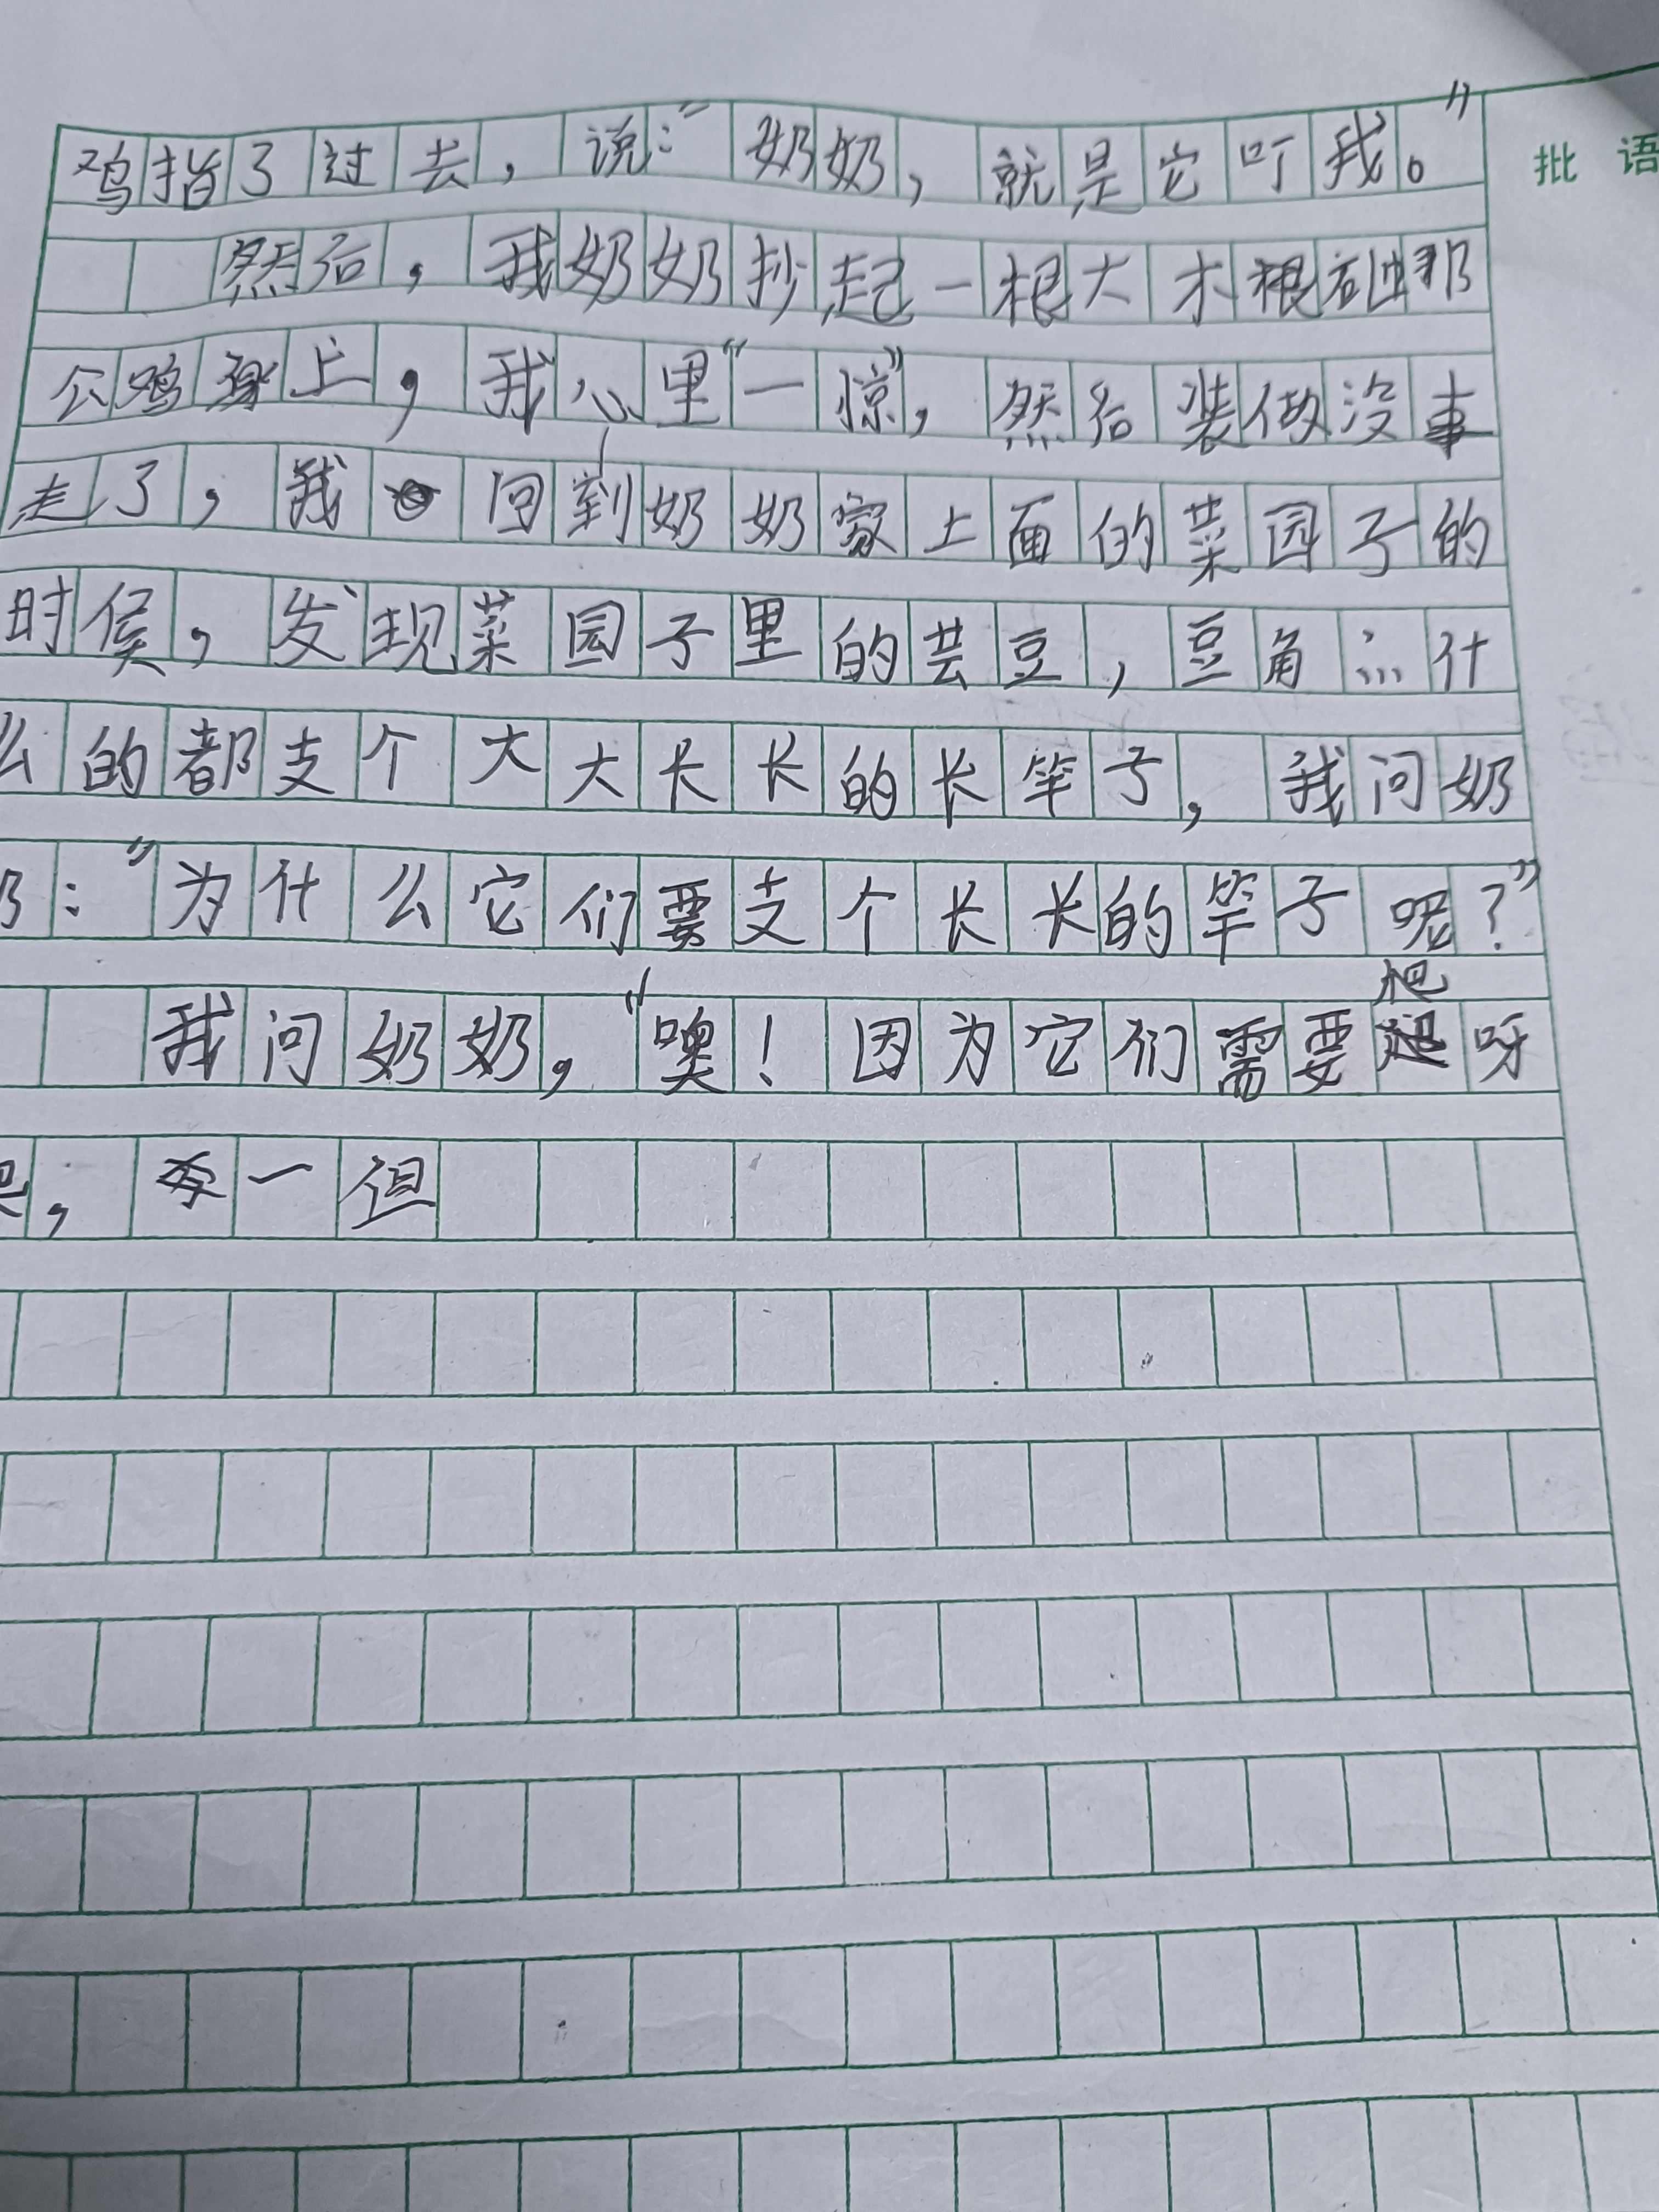 鸡指了过去，说：“奶奶，就是它叮我。”
批语
然后，我奶奶抄起一根大木根砸那
公鸡身上，我心里“一惊”，然后装做没事
走了，我回到奶奶家上面的菜园子的
时侯，发现菜园子里的芸豆，豆角……什
么的都支个大大长长的长竿子，我问奶
奶：“为什么它们要支个长长的竿子呢？”
我问奶奶，“噢！因为它们需要爬呀
，一但